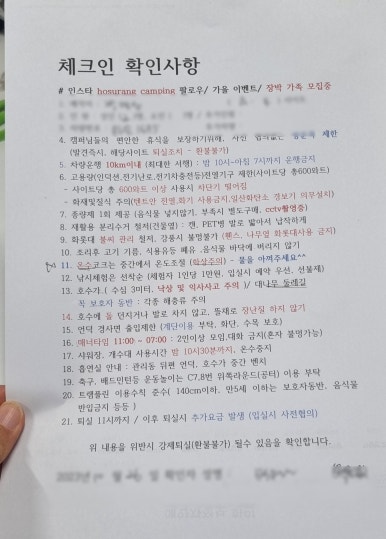 체크인 확인사항
# 인스타 hosurang camping 팔로우/ 가을 이벤트/ 장박 가족 모집중
4. 캠퍼님들의 편안한 휴식을 보장하기위해, 사전 제한
(발견즉시, 해당사이트 퇴실조치 - 환불불가)
5. 차량운행 10km이내 (최대한 서행) : 밤 10시~아침 7시까지 운행금지
6. 고용량(인덕션,전기난로,전기차충전등)전열기구 제한(사이트당 총600와트)
- 사이트당 총 600와트 이상 사용시 차단기 떨어짐
- 화재및질식 주의(텐트안 잔열,화기 사용금지,일산화탄소 경보기 의무설치)
7. 종량제 1회 제공 (음식물 넣지않기, 부족시 별도구매, cctv촬영중)
8. 재활용 분리수거 철저(건물동) : 캔, PET병 발로 밟아서 납작하게
9. 화롯대 불씨 관리 철저, 강풍시 불멍불가 (헨스, 나무옆 화롯대사용 금지)
10. 조리후 고기 기름, 식용유등 폐유 ,음식물 바닥에 버리지 않기
11. 온수코크는 중간에서 온도조절 (화상주의) - 물을 아껴주세요^^
12. 낚시체험은 선착순 (체험자 1인당 1만원, 입실시 예약 우선, 선불제)
13. 호수가, ( 수심 3미터, 낙상 및 익사사고 주의 )/ 대나무 둘레길
꼭 보호자 동반 : 각종 해충류 주의
14. 호수에 돌 던지거나 발로 차지 않고, 뜰채로 장난질 하지 않기
15. 언덕 경사면 출입제한 (계단이용 부탁, 화단, 수목 보호)
16. 매너타임 11:00 ~ 07:00 : 2인이상 모임,대화 금지(혼자 불멍가능)
17. 샤워장, 개수대 사용시간 밤 10시30분까지, 온수중지
18. 흡연실 안내 : 관리동 뒤편 언덕, 호수가 흡연 절대 불가
19. 축구, 배드민턴등 운동놀이는 C7,8번 위쪽라운드(공터) 이용 부탁
20. 트램플린 이용수칙 준수( 140cm이하, 만5세 이하는 보호자동반, 음식물
반입금지 등등 )
21. 퇴실 11시까지 / 이후 퇴실시 추가요금 발생 (입실시 사전협의)
위 내용을 위반시 강제퇴실(환불불가) 될수 있음을 확인합니다.